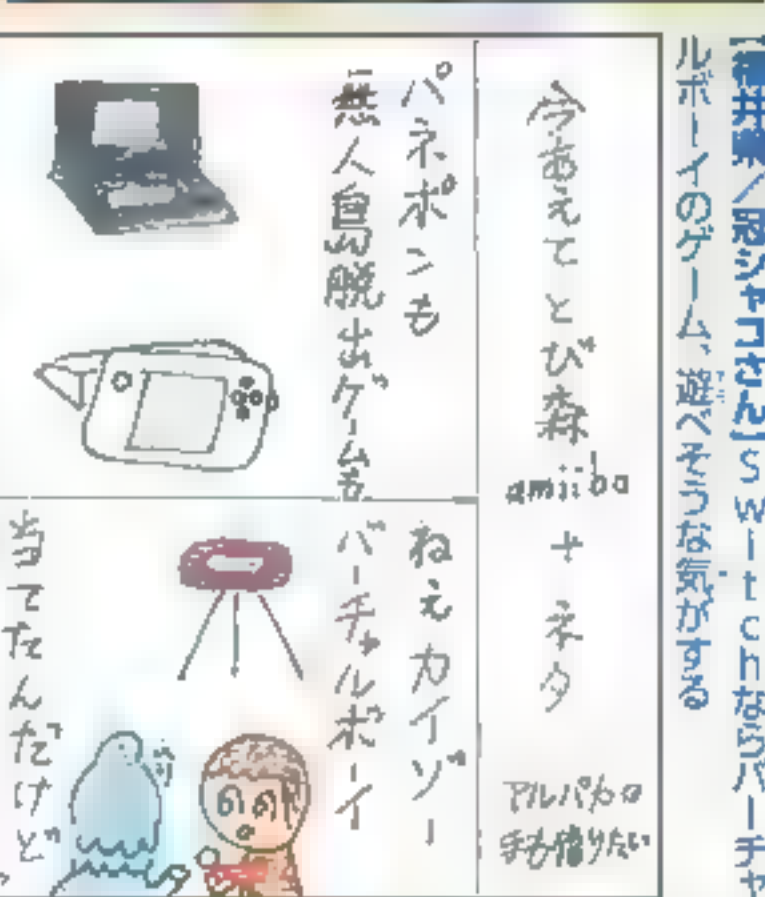 【福井県／冠シャコさん】Switchならバーチャ
ルボーイのゲーム、遊べそうな気がする
今あえてとび森
amiibo
+ネタ
アルパカの
手も借りたい
パネポンも
無人島脱出ゲームも
ねえカイゾー
バーチャルボーイ
当てたんだけど